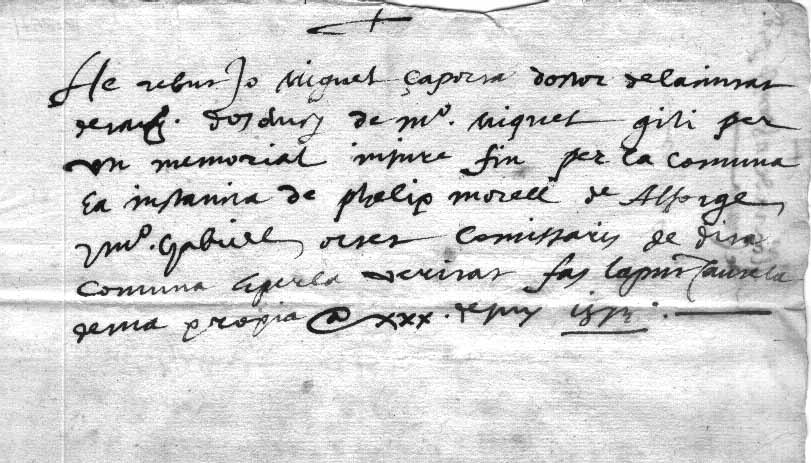 He rebut Jo Miguel Çaporta doctor de la ciutat
dos ducs de mº. Miquel gili per
un memorial in jure fiu per la Comuna
Ea instantia de phelip morell de Alforge
y mº. Gabriell comissaris de dita
comuna E per la veritat fas la present cautela
de ma propia @ xxx. de juny